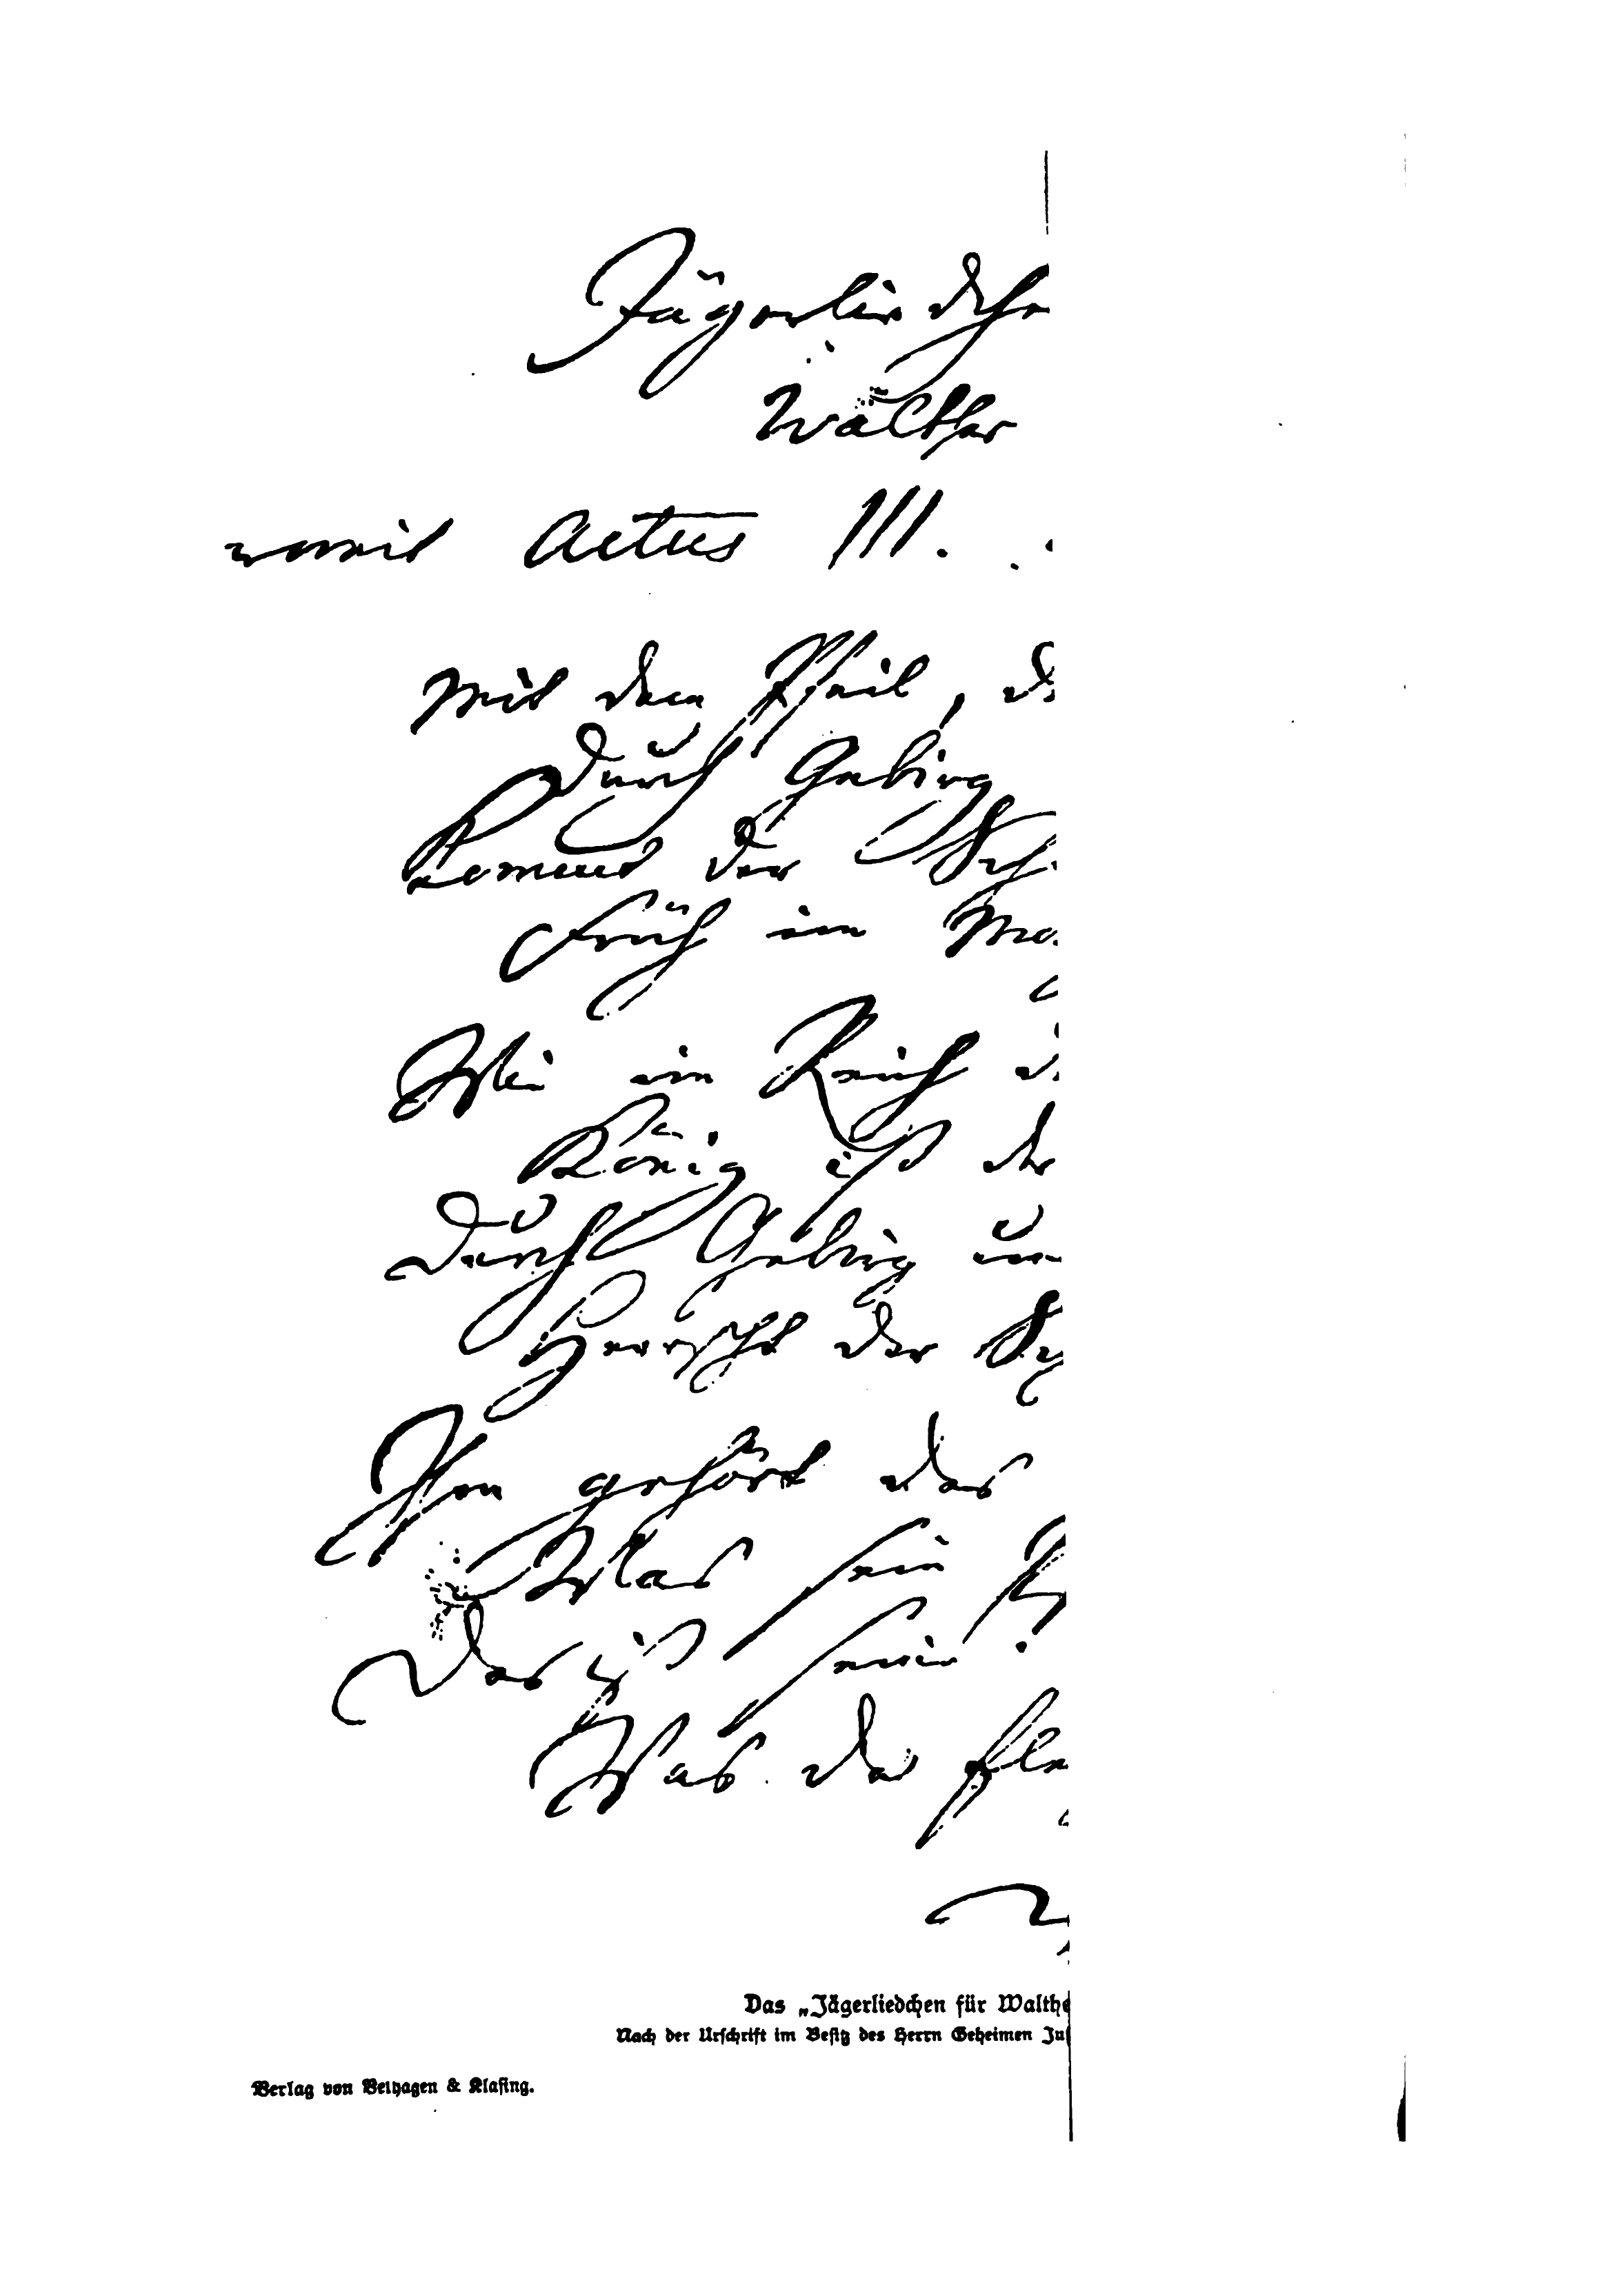 Jägerliedche
Walther
womit Actus III.
Mit dem Pfeil, d
Durch Gebirg
Kommt der Sch
Früh im Mo
Wie im Reich d
König ist der
Durch Gebirg un
Herrscht der Sch
Ihm gehört das
Was sein Pf
Das ist seine
Was da fle
Das „Jägerliedchen für Walthe
Nach der Urschrift im Besitz des Herrn Geheimen Ju
Verlag von Velhagen & Klasing.